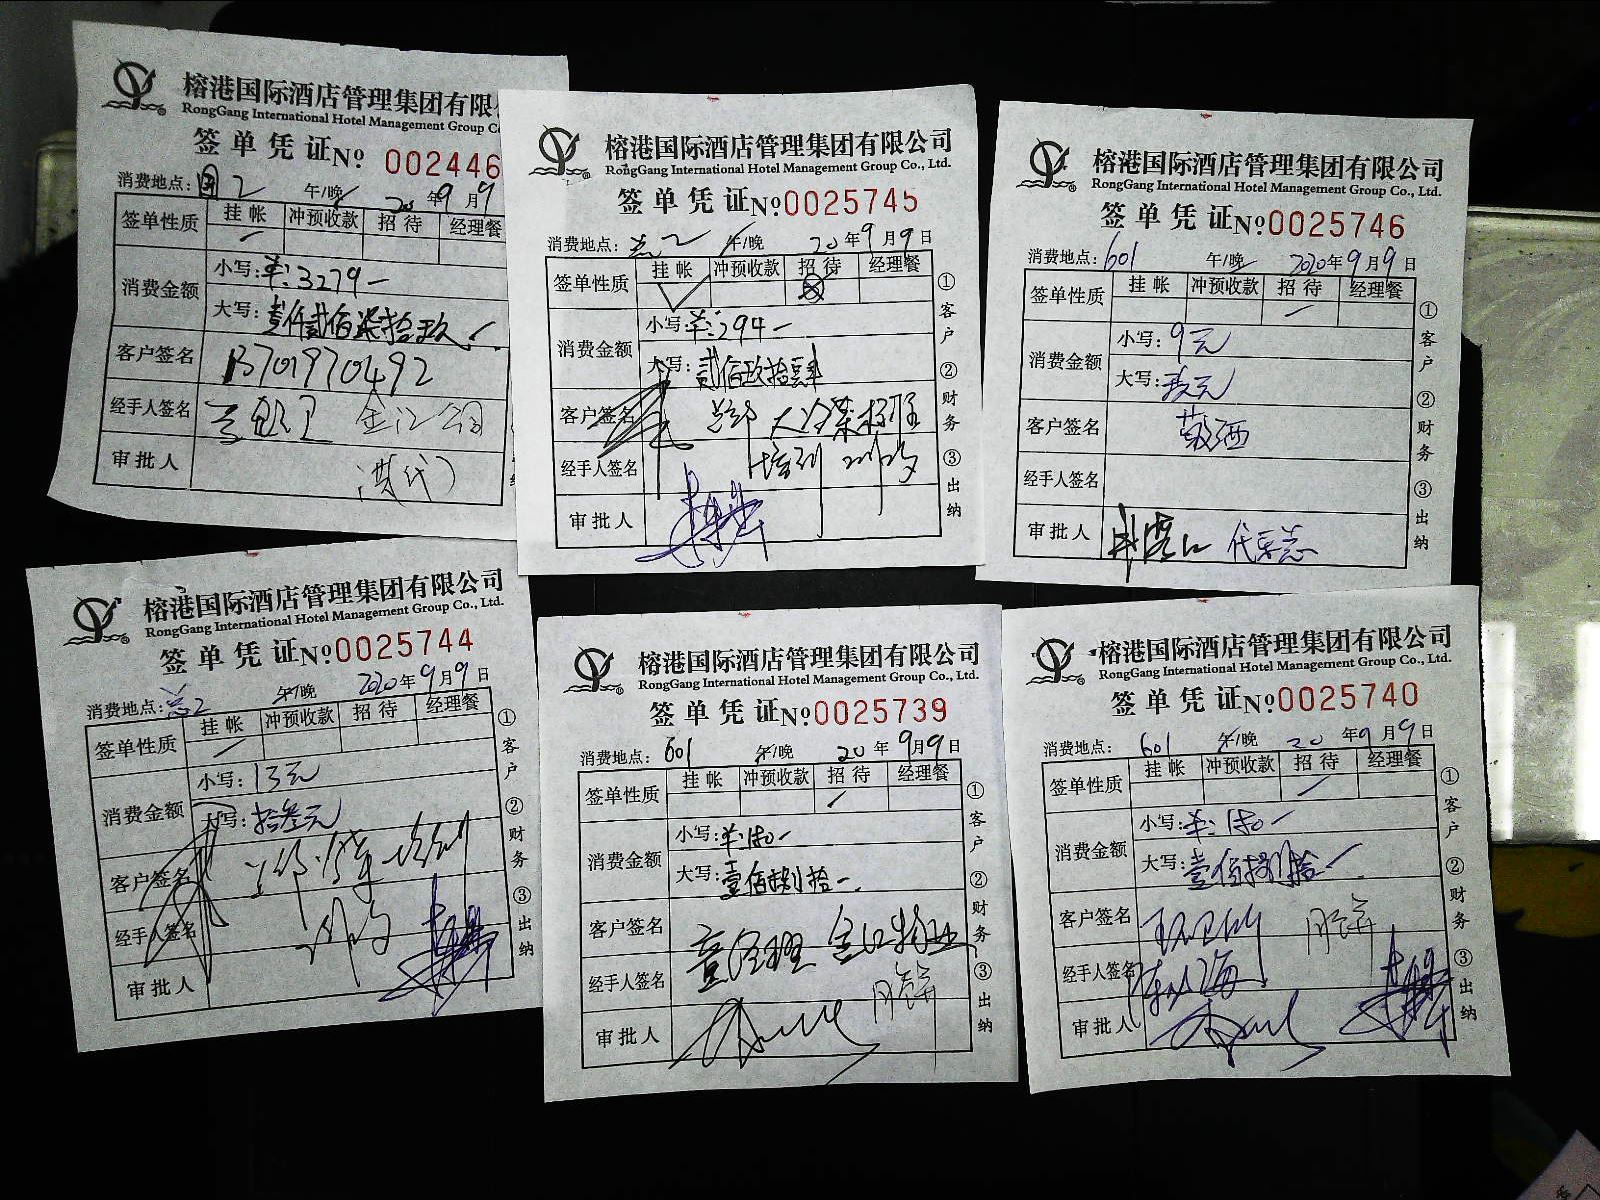 榕港国际酒店管理集团有限
RongGang International Hotel Management Group Co
签单凭证 № 002446
消费地点: 2 午/晚 20 年 9 月 9
签单性质 挂帐 冲预收款 招待 经理餐
消费金额 小写: 3279
大写: 壹仟贰佰柒拾玖
客户签名 13701970492
经手人签名
审批人

榕港国际酒店管理集团有限公司
RongGang International Hotel Management Group Co., Ltd.
签单凭证 № 0025745
消费地点: 2 午/晚 20 年 9 月 9 日
签单性质 挂帐 冲预收款 招待 经理餐
消费金额 小写: 294
大写: 贰佰玖拾肆
客户签名
经手人签名 培训
审批人
① 客户 ② 财务 ③ 出纳

榕港国际酒店管理集团有限公司
RongGang International Hotel Management Group Co., Ltd.
签单凭证 № 0025746
消费地点: 601 午/晚 2020 年 9 月 9 日
签单性质 挂帐 冲预收款 招待 经理餐
消费金额 小写: 9元
大写: 玖元
客户签名 敬酒
经手人签名
审批人
① 客户 ② 财务 ③ 出纳

榕港国际酒店管理集团有限公司
RongGang International Hotel Management Group Co., Ltd.
签单凭证 № 0025744
消费地点: 2 午/晚 2020 年 9 月 9 日
签单性质 挂帐 冲预收款 招待 经理餐
消费金额 小写: 13元
大写: 拾叁元
客户签名 培训
经手人签名
审批人
① 客户 ② 财务 ③ 出纳

榕港国际酒店管理集团有限公司
RongGang International Hotel Management Group Co., Ltd.
签单凭证 № 0025739
消费地点: 601 午/晚 20 年 9 月 9 日
签单性质 挂帐 冲预收款 招待 经理餐
消费金额 小写: 180
大写: 壹佰捌拾
客户签名 童经理 金江物业
经手人签名 月饼
审批人
① 客户 ② 财务 ③ 出纳

榕港国际酒店管理集团有限公司
RongGang International Hotel Management Group Co., Ltd.
签单凭证 № 0025740
消费地点: 601 午/晚 20 年 9 月 9 日
签单性质 挂帐 冲预收款 招待 经理餐
消费金额 小写: 180
大写: 壹佰捌拾
客户签名 月饼
经手人签名
审批人
① 客户 ② 财务 ③ 出纳